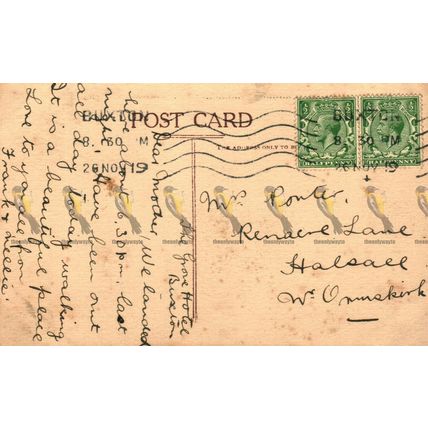 POST CARD
BUXTON
8. 30 M
26 NOV 19
BUXTON
8. 30 M
26 NOV 19
THE ADDRESS ONLY TO B
HALFPENNY
HALFPENNY
Grove Hotel
Buxton
Dear Mother, We landed
here 6.30pm. last
night. Have been out
all day today walking
It is a beautiful place
Love to you all from
Frank &
Mrs. Porter,
Renacre Lane
Halsall
Nr Ormskirk
theonlywayto
theonlywayto
theonlywayto
theonlywayto
theonlywayto
theonlywayto
theonlywayto
theonlywayto